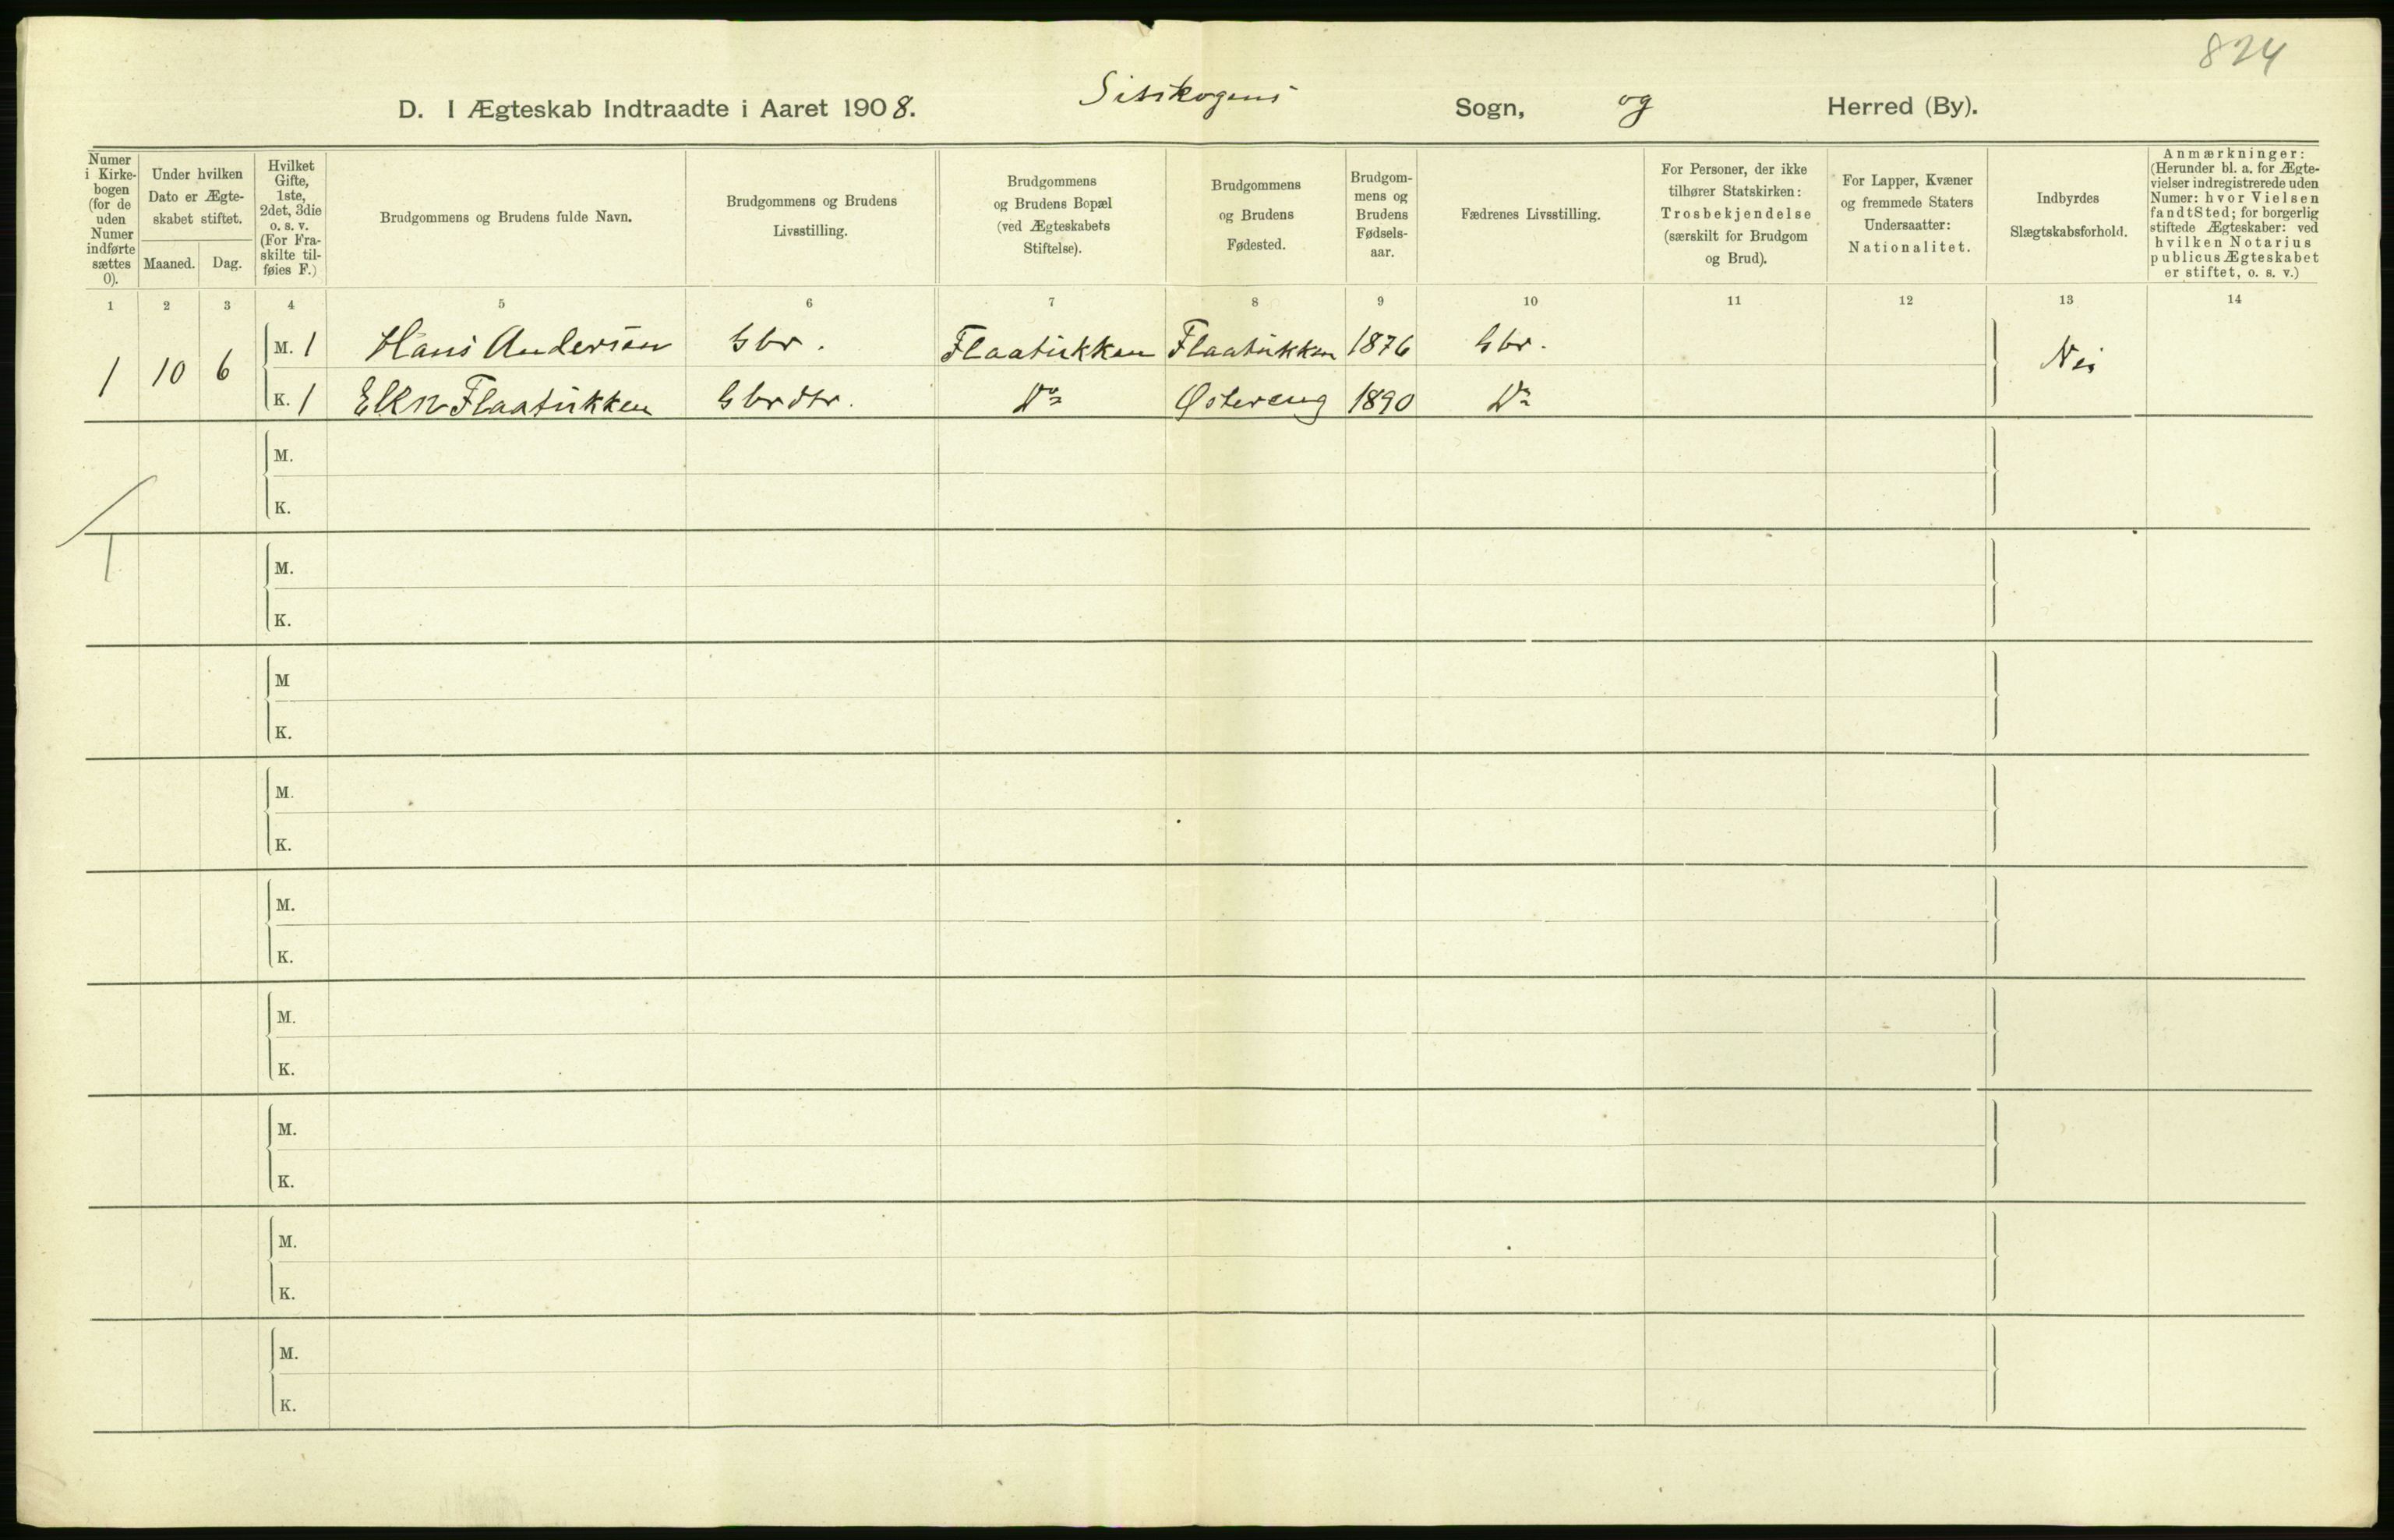 824
D. I Ægteskab Indtraadte i Aaret 1908. Sitskogens Sogn, og Herred (By).
Numer i Kirkebogen (for de uden Numer indførte sættes 0).
Under hvilken Dato er Ægteskabet stiftet.
Maaned. Dag.
Hvilket Gifte, 1ste, 2det, 3die o. s. v. (For Fraskilte tilføies F.)
Brudgommens og Brudens fulde Navn.
Brudgommens og Brudens Livsstilling.
Brudgommens og Brudens Bopæl (ved Ægteskabets Stiftelse).
Brudgommens og Brudens Fødested.
Brudgommens og Brudens Fødselsaar.
Fædrenes Livsstilling.
For Personer, der ikke tilhører Statskirken: Trosbekjendelse (særskilt for Brudgom og Brud).
For Lapper, Kvæner og fremmede Staters Undersaatter: Nationalitet.
Indbyrdes Slægtskabsforhold.
Anmærkninger: (Herunder bl. a. for Ægtevielser indregistrerede uden Numer: hvor Vielsen fandt Sted; for borgerlig stiftede Ægteskaber: ved hvilken Notarius publicus Ægteskabet er stiftet, o. s. v.)
1 2 3 4 5 6 7 8 9 10 11 12 13 14
1 10 6 M. 1 Hans Andersen Gbr. Flaatükken Flaatükken 1876 Gbr. Nei
K. 1 Flaatükken Gbrdtr. Do Østereng 1890 Do
M.
K.
1
M.
K.
M
K.
M.
K.
M.
K.
M.
K.
M.
K.
M.
K.
M.
K.